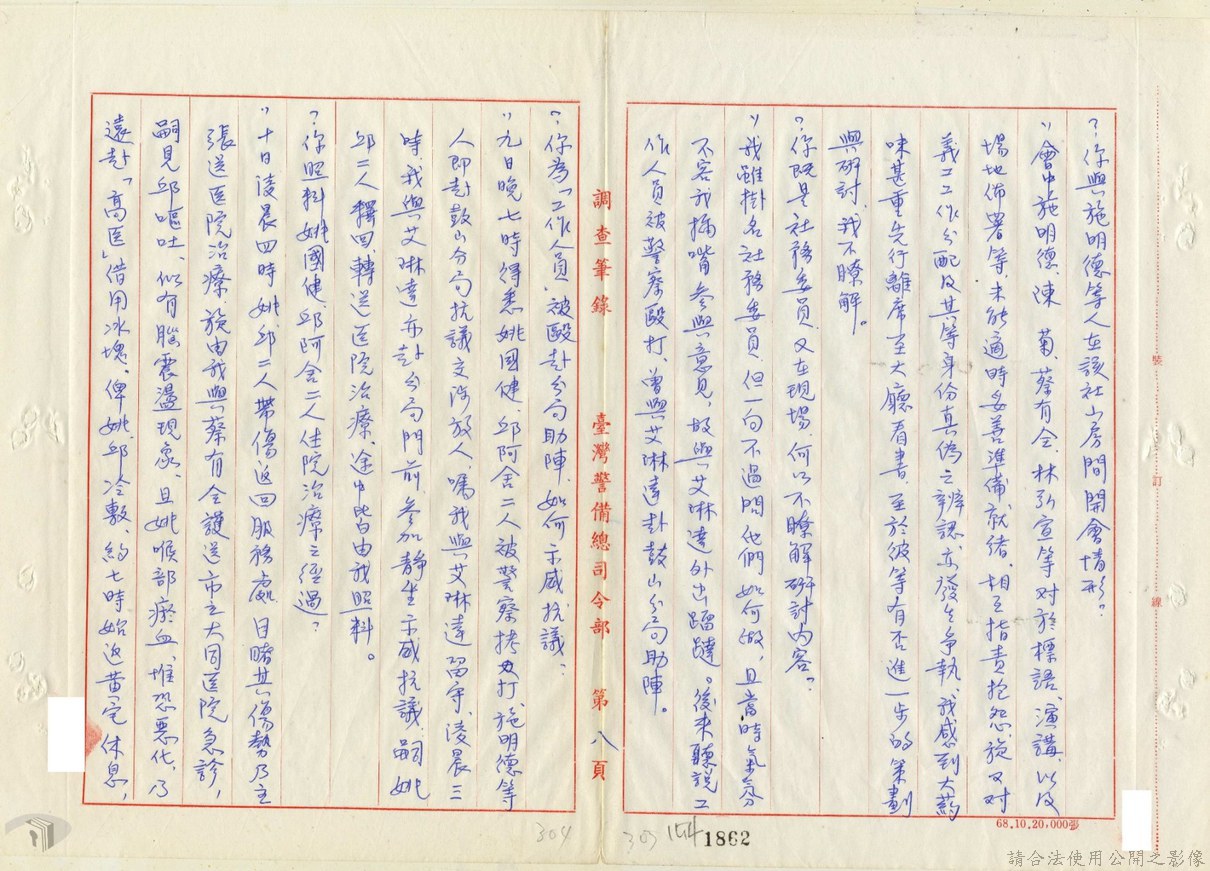 ?你與施明德等人在該社山房間開會情形?
!!會中施明德、陳 菊、蔡有全、林弘宣等對於標語、演講、以及
場地佈署等未能適時妥善準備就緒,相互指責抱怨,旋又對
義工工作分配及其等身份真偽之辨認,亦發生爭執,我感到火藥
味甚重先行離席至大廳看書,至於彼等有否進一步的策劃
與研討,我不瞭解。
?你既是社務委員,又在現場,何以不瞭解研討內容?
!!我雖掛名社務委員,但一向不過問他們如何做,且當時氣氛
不容我插嘴參與意見,故與艾琳達外出蹓躂。後來聽說工
作人員被警察毆打,曾與艾琳達赴鼓山分局助陣。
調查筆錄 臺灣警備總司令部 第八頁
?你為「工作人員」被毆赴分局助陣,如何示威抗議?
!!九日晚七時得悉姚國健、邱阿舍二人被警察拷打,施明德等
人即赴鼓山分局抗議交涉放人,囑我與艾琳達留守,凌晨三
時,我與艾琳達亦赴分局門前,參加靜坐示威抗議,嗣姚
邱二人釋回,轉送医院治療,途中皆由我照料。
?你照料姚國健、邱阿舍二人住院治療之經過?
!!十日凌晨四時姚、邱二人帶傷返回服務處,目睹其傷勢乃主
張送医院治療,旋由我與蔡有全護送市立大同医院急診,
嗣見邱嘔吐,似有腦震盪現象,且姚喉部瘀血,堆恐惡化,乃
遠赴「高医」借用冰塊,俾姚、邱冷敷,約七時始返黃宅休息,
裝
訂
線
68.10.20,000份
304
303
154
1862
請合法使用公開之影像